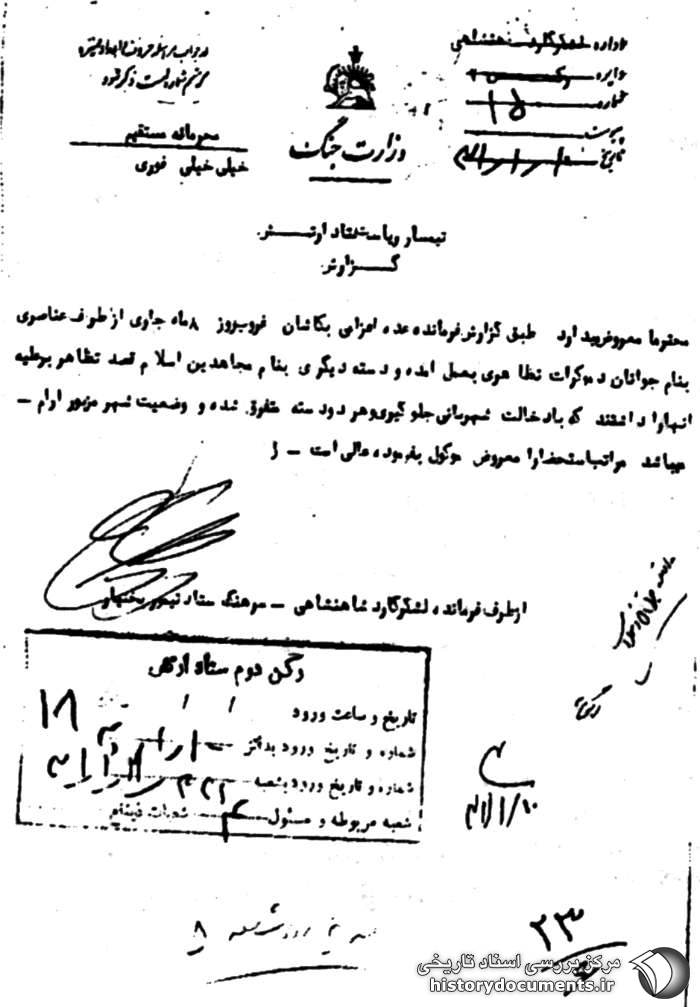 اداره لشکر گارد شاهنشاهی
دایره رکن
شماره ۱۵
پیوست
تاریخ
وزارت جنگ
در جواب مراسله حروف ابجد و عنبره
مرقوم شماره ثبت ذکر شود
محرمانه مستقیم
خیلی خیلی فوری
تیمسار ریاست ستاد ارتش
گزارش
محترما معروض میدارد طبق گزارش فرمانده عده اعزامی بکاشان غروب روز ۸ ماه جاری از طرف عناصری
بنام جوانان دموکرات تظاهری بعمل آمده و دسته دیگری بنام مجاهدین اسلام قصد تظاهر برعلیه
آنها را داشتند که با دخالت شهربانی جلوگیری و هر دو دسته متفرق شده و وضعیت شهر مزبور آرام –
میباشد مراتب استحضارا معروض موکول بفرموده عالی است – ز
از طرف فرمانده لشکر گارد شاهنشاهی – سرهنگ ستاد تیمور بختیار
رکن دوم ستاد ارتش
تاریخ و ساعت ورود
۱۸
شماره و تاریخ ورود بدفتر
شماره و تاریخ ورود بشعبه
شعبه مربوطه و مسئول
۳۱/۱/۱۰
۲۳
مرکز بررسی اسناد تاریخی
historydocuments.ir